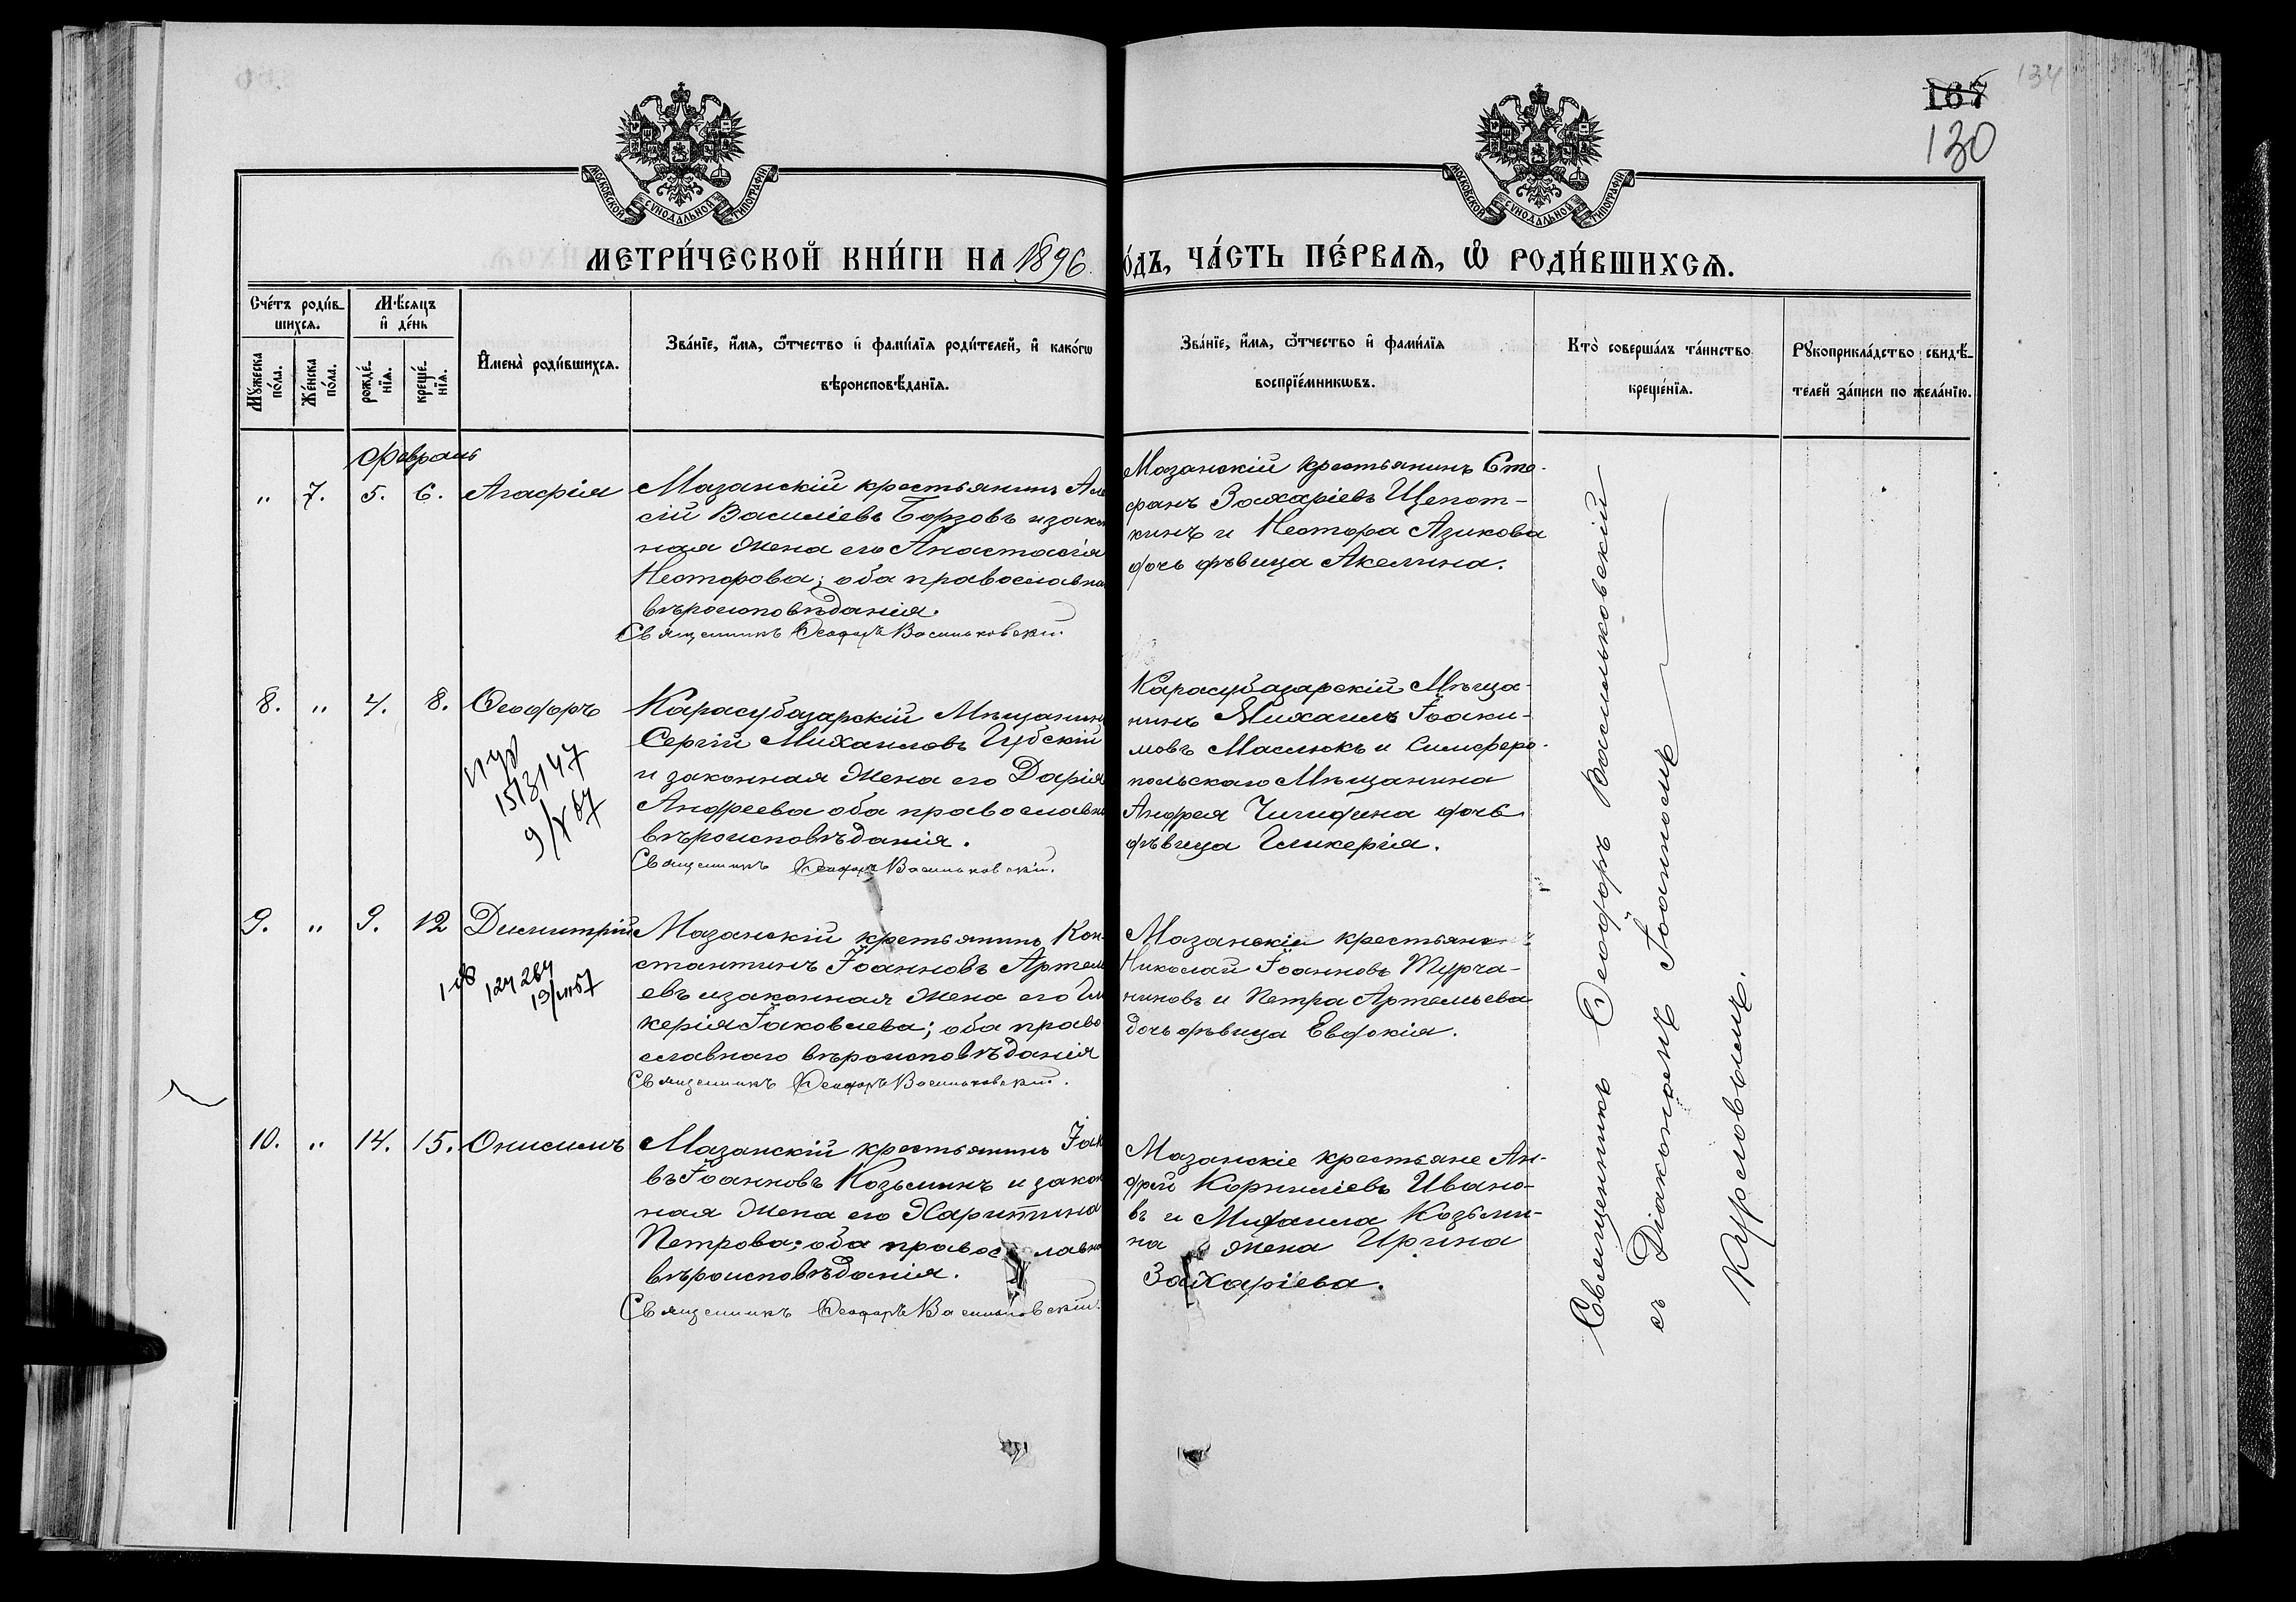 167
130
134
МОСКОВСКОЙ СѴНОДАЛЬНОЙ ТИПОГРАФІИ
МОСКОВСКОЙ СѴНОДАЛЬНОЙ ТИПОГРАФІИ
МЕТРИ́ЧЕСКОЙ КНИ́ГИ НА 1896
О́ДЪ, ЧА́СТЬ ПЕ́РВАѦ, Ѡ҆ РОДИ́ВШИХСѦ.
Сче́тъ роди́в-
шихсѧ.
Мѣ́сѧцъ
и҆ де́нь
Мꙋ́жеска по́ла.
Же́нска по́ла.
рожде́-
нїѧ.
креще́-
нїѧ.
И҆мена̀ роди́вшихсѧ.
Зва́нїе, и҆́мѧ, ѻ҆́тчество и҆ фами́лїѧ роди́телей, и҆ како́гѡ
вѣроисповѣ́данїѧ.
Зва́нїе, и҆́мѧ, ѻ҆́тчество и҆ фами́лїѧ
воспрїе́мникѡвъ.
Кто̀ соверша́лъ та́инство
креще́нїѧ.
Рꙋкоприкла́дство свидѣ́-
телей за́писи по жела́нїю.
Февраль
" 7. 5. 6. Агафія
Мазанскій крестьянинъ Але
сій Василіевъ Борзовъ и закон
ная жена его Анастасія
Несторова; оба православна
вѣроисповѣданія.
Священникъ Ѳеодоръ Васильковскій.
Мазанскій крестьянинъ Сте-
фанъ Захаріевъ Щепот-
кинъ и Нестора Азикова
дочь дѣвица Акелина.
8. " 4. 8. Ѳеодоръ
15/3/47
9/X 67
Карасубазарскій Мѣщанинъ
Сергій Михаиловъ Губскій
и законная жена его Дарія
Андреева оба православн
вѣроисповѣданія.
Священникъ Ѳеодоръ Васильковскій.
Карасубазарскій Мѣща-
нинъ Михаилъ Іоаки-
мовъ Маслюкъ и Симферо-
польскаго Мѣщанина
Андрея Чигидина дочь
дѣвица Гликерія.
9. " 9. 12 Димитрій
124 264
Мазанскій крестьянинъ Кон-
стантинъ Іоанновъ Артем
евъ и законная жена его Гли
керія Іаковлева; оба право
славнаго вѣроисповѣданія
Священникъ Ѳеодоръ Васильковскій.
Мазанскій крестьянинъ
Николай Іоанновъ Турча-
ниновъ и Петра Артемьева
дочь дѣвица Евдокія.
10. " 14. 15. Онисимъ
Мазанскій крестьянинъ Іак
въ Іоанновъ Козьминъ и закон
ная жена его Харитина
Петрова; оба православна
вѣроисповѣданія.
Священникъ Ѳеодоръ Васильковскій.
Мазанскіе крестьяне Ан-
дрей Корниліевъ Ивано-
въ и Михаила Козьми-
на жена Ирина
Захаріева.
Священникъ Ѳеодоръ Васильковскій
съ Діакономъ Іоанномъ
Курсловымъ.